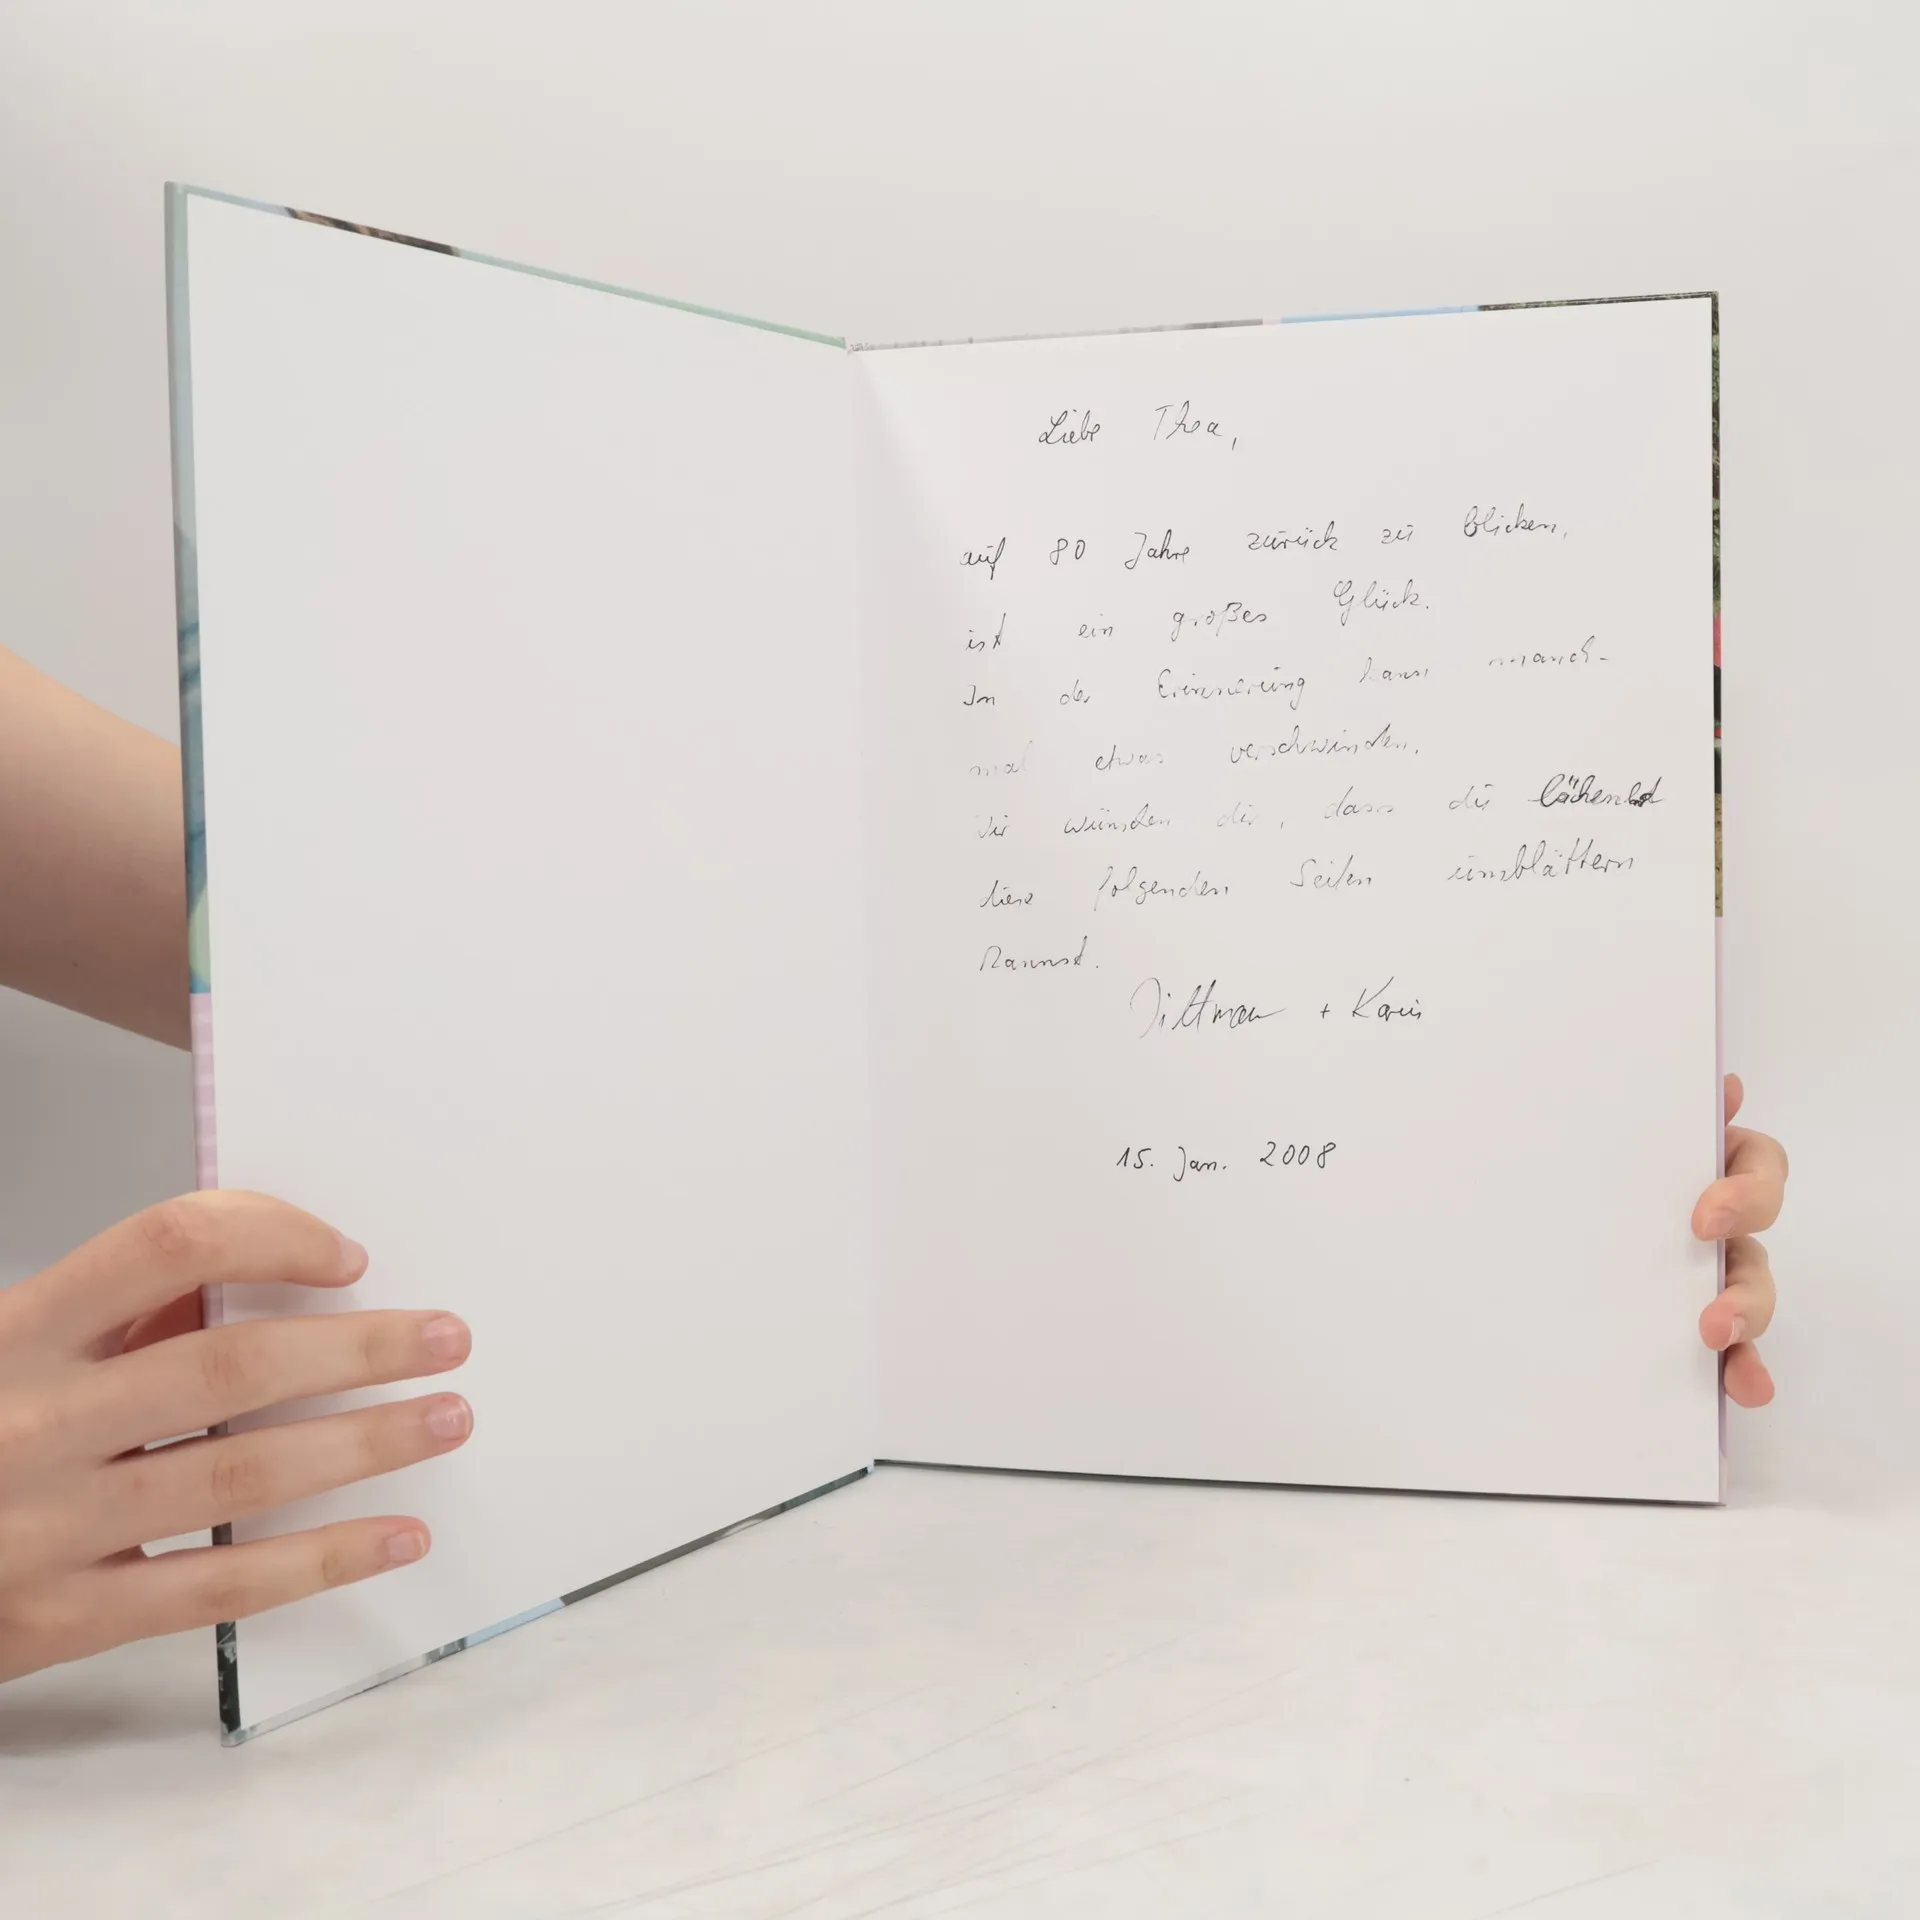 Liebe Thea,
auf 80 Jahre zurück zu blicken,
ist ein großes Glück.
In der Erinnerung kann manch-
mal etwas verschwinden.
Wir wünschen dir, dass du lächelnd
diese folgenden Seiten umblättern
kannst.
+ Karin
15. Jan. 2008